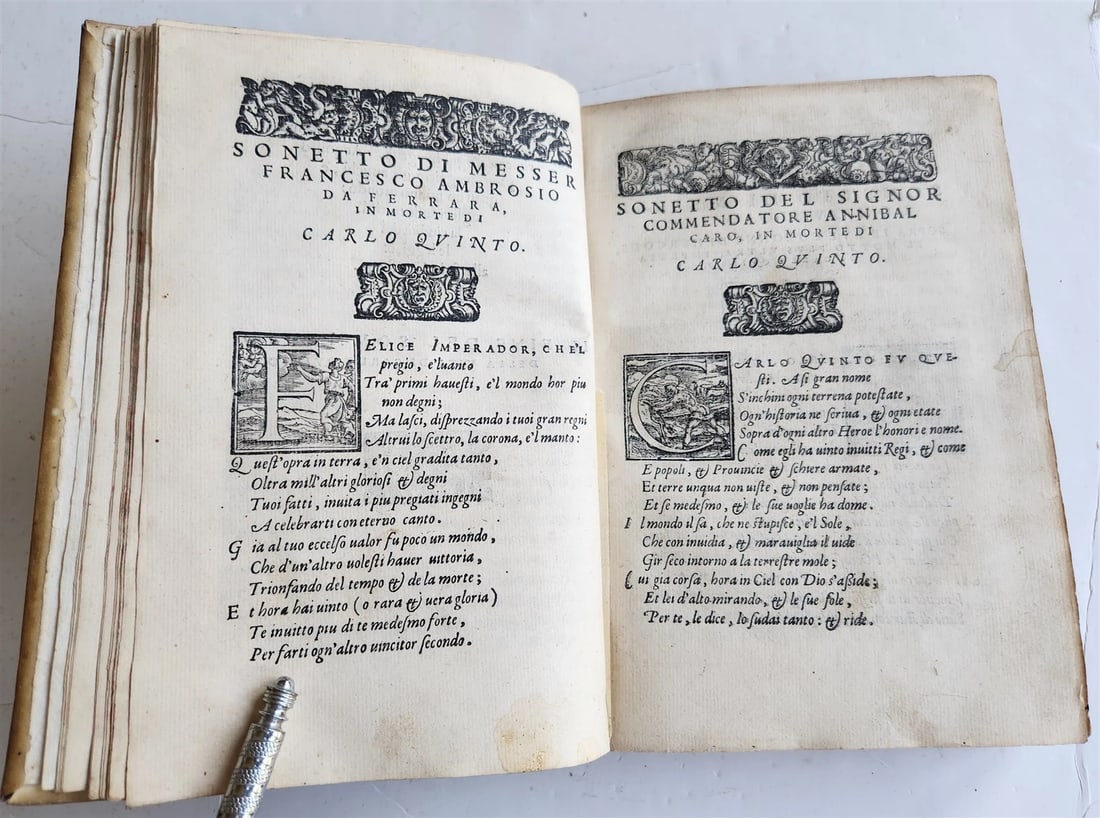 SONETTO DI MESSER
FRANCESCO AMBROSIO
DA FERRARA,
IN MORTE DI
CARLO QVINTO.
FELICE IMPERADOR, CHE'L
pregio, e'luanto
Tra' primi hauesti, e'l mondo hor piu
non degni;
Ma lasci, disprezzando i tuoi gran regni
Altrui lo scettro, la corona, e'l manto:
Quest'opra in terra, e'n ciel gradita tanto,
Oltra mill'altri gloriosi & degni
Tuoi fatti, inuita i piu pregiati ingegni
A celebrarti con eterno canto.
Gia al tuo eccelso valor fu poco un mondo,
Che d'un'altro volesti hauer vittoria,
Trionfando del tempo & de la morte;
Et hora hai uinto (o rara & uera gloria)
Te inuitto piu di te medesmo forte,
Per farti ogn'altro uincitor secondo.
SONETTO DEL SIGNOR
COMMENDATORE ANNIBAL
CARO, IN MORTE DI
CARLO QVINTO.
CARLO QVINTO FV QVE-
sti. A si gran nome
S'inchini ogni terrena potestate,
Ogn'historia ne scriua, & ogni etate
Sopra d'ogni altro Heroe l'honori e nome.
Come egli ha uinto inuitti Regi, & come
E popoli, & Prouincie & schiere armate,
Et terre unqua non uiste, & non pensate;
Et se medesmo, & le sue uoglie ha dome.
Il mondo il sà, che ne stupisce, e'l Sole,
Che con inuidia, & marauiglia il uide
Gir seco intorno a la terrestre mole;
Cui gia corsa, hora in Ciel con Dio s'asside;
Et lei d'alto mirando, & le sue fole,
Per te, le dice, Io sudai tanto: & ride.